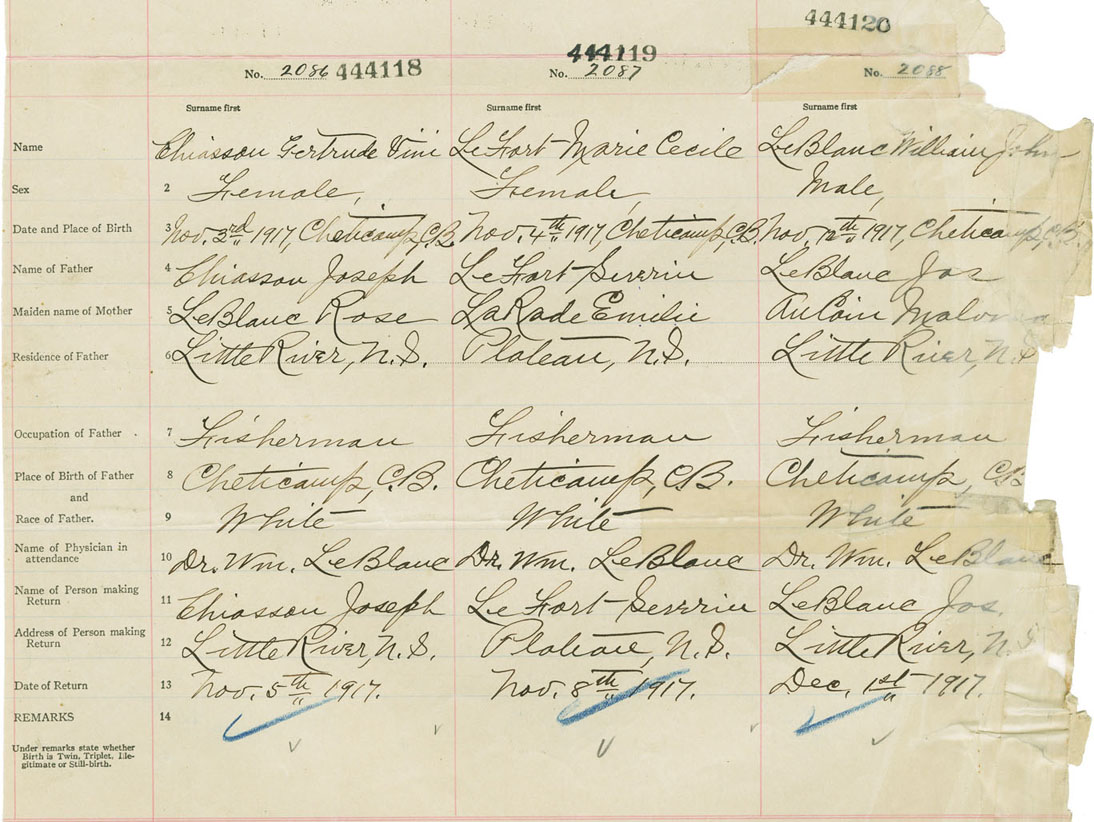 444120
444119
No. 2086 444118 No. 2087 No. 2088
Surname first Surname first Surname first
Name Chiasson Gertrude LeFort Marie Cecile LeBlanc William John
Sex 2 Female, Female, Male,
Date and Place of Birth 3 Nov. 3rd 1917, Cheticamp, C.B. Nov. 4th 1917, Cheticamp, C.B. Nov. 12th 1917, Cheticamp, C.B.
Name of Father 4 Chiasson Joseph LeFort Severin LeBlanc Jos
Maiden name of Mother 5 LeBlanc Rose LaRade Emilie AuCoin
Residence of Father 6 Little River, N.S. Plateau, N.S. Little River, N.S
Occupation of Father 7 Fisherman Fisherman Fisherman
Place of Birth of Father 8 Cheticamp, C.B. Cheticamp, C.B. Cheticamp, C.B
and
Race of Father. 9 White White White
Name of Physician in
attendance 10 Dr. Wm. LeBlanc Dr. Wm. LeBlanc Dr. Wm. LeBlanc
Name of Person making
Return 11 Chiasson Joseph LeFort Severin LeBlanc Jos.
Address of Person making
Return 12 Little River, N.S. Plateau, N.S. Little River, N.S
Date of Return 13 Nov. 5th 1917. Nov. 8th 1917. Dec. 1st 1917.
REMARKS 14
Under remarks state whether
Birth is Twin, Triplet, Ille-
gitimate or Still-birth.